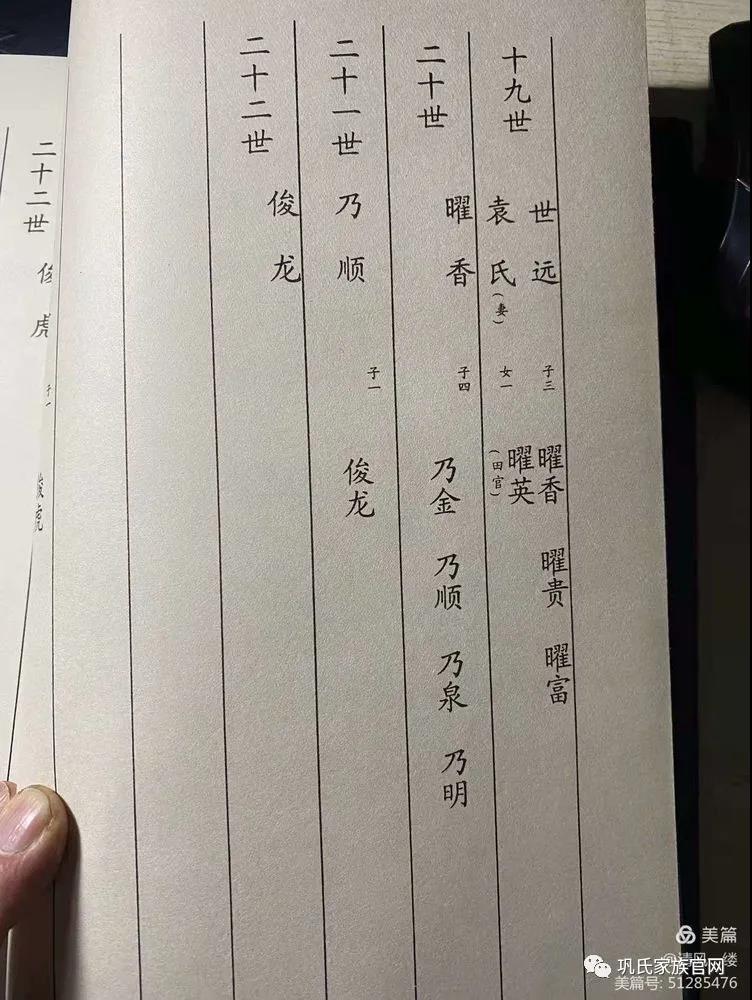 十九世 世远 子三 曜香 曜贵 曜富
袁氏(妻) 女一 曜英(田官)
二十世 曜香 子四 乃金 乃顺 乃泉 乃明
二十一世 乃顺 子一 俊龙
二十二世 俊龙
二十二世 俊虎 子一 俊虎
美篇
巩氏家族官网
美篇号: 51285476